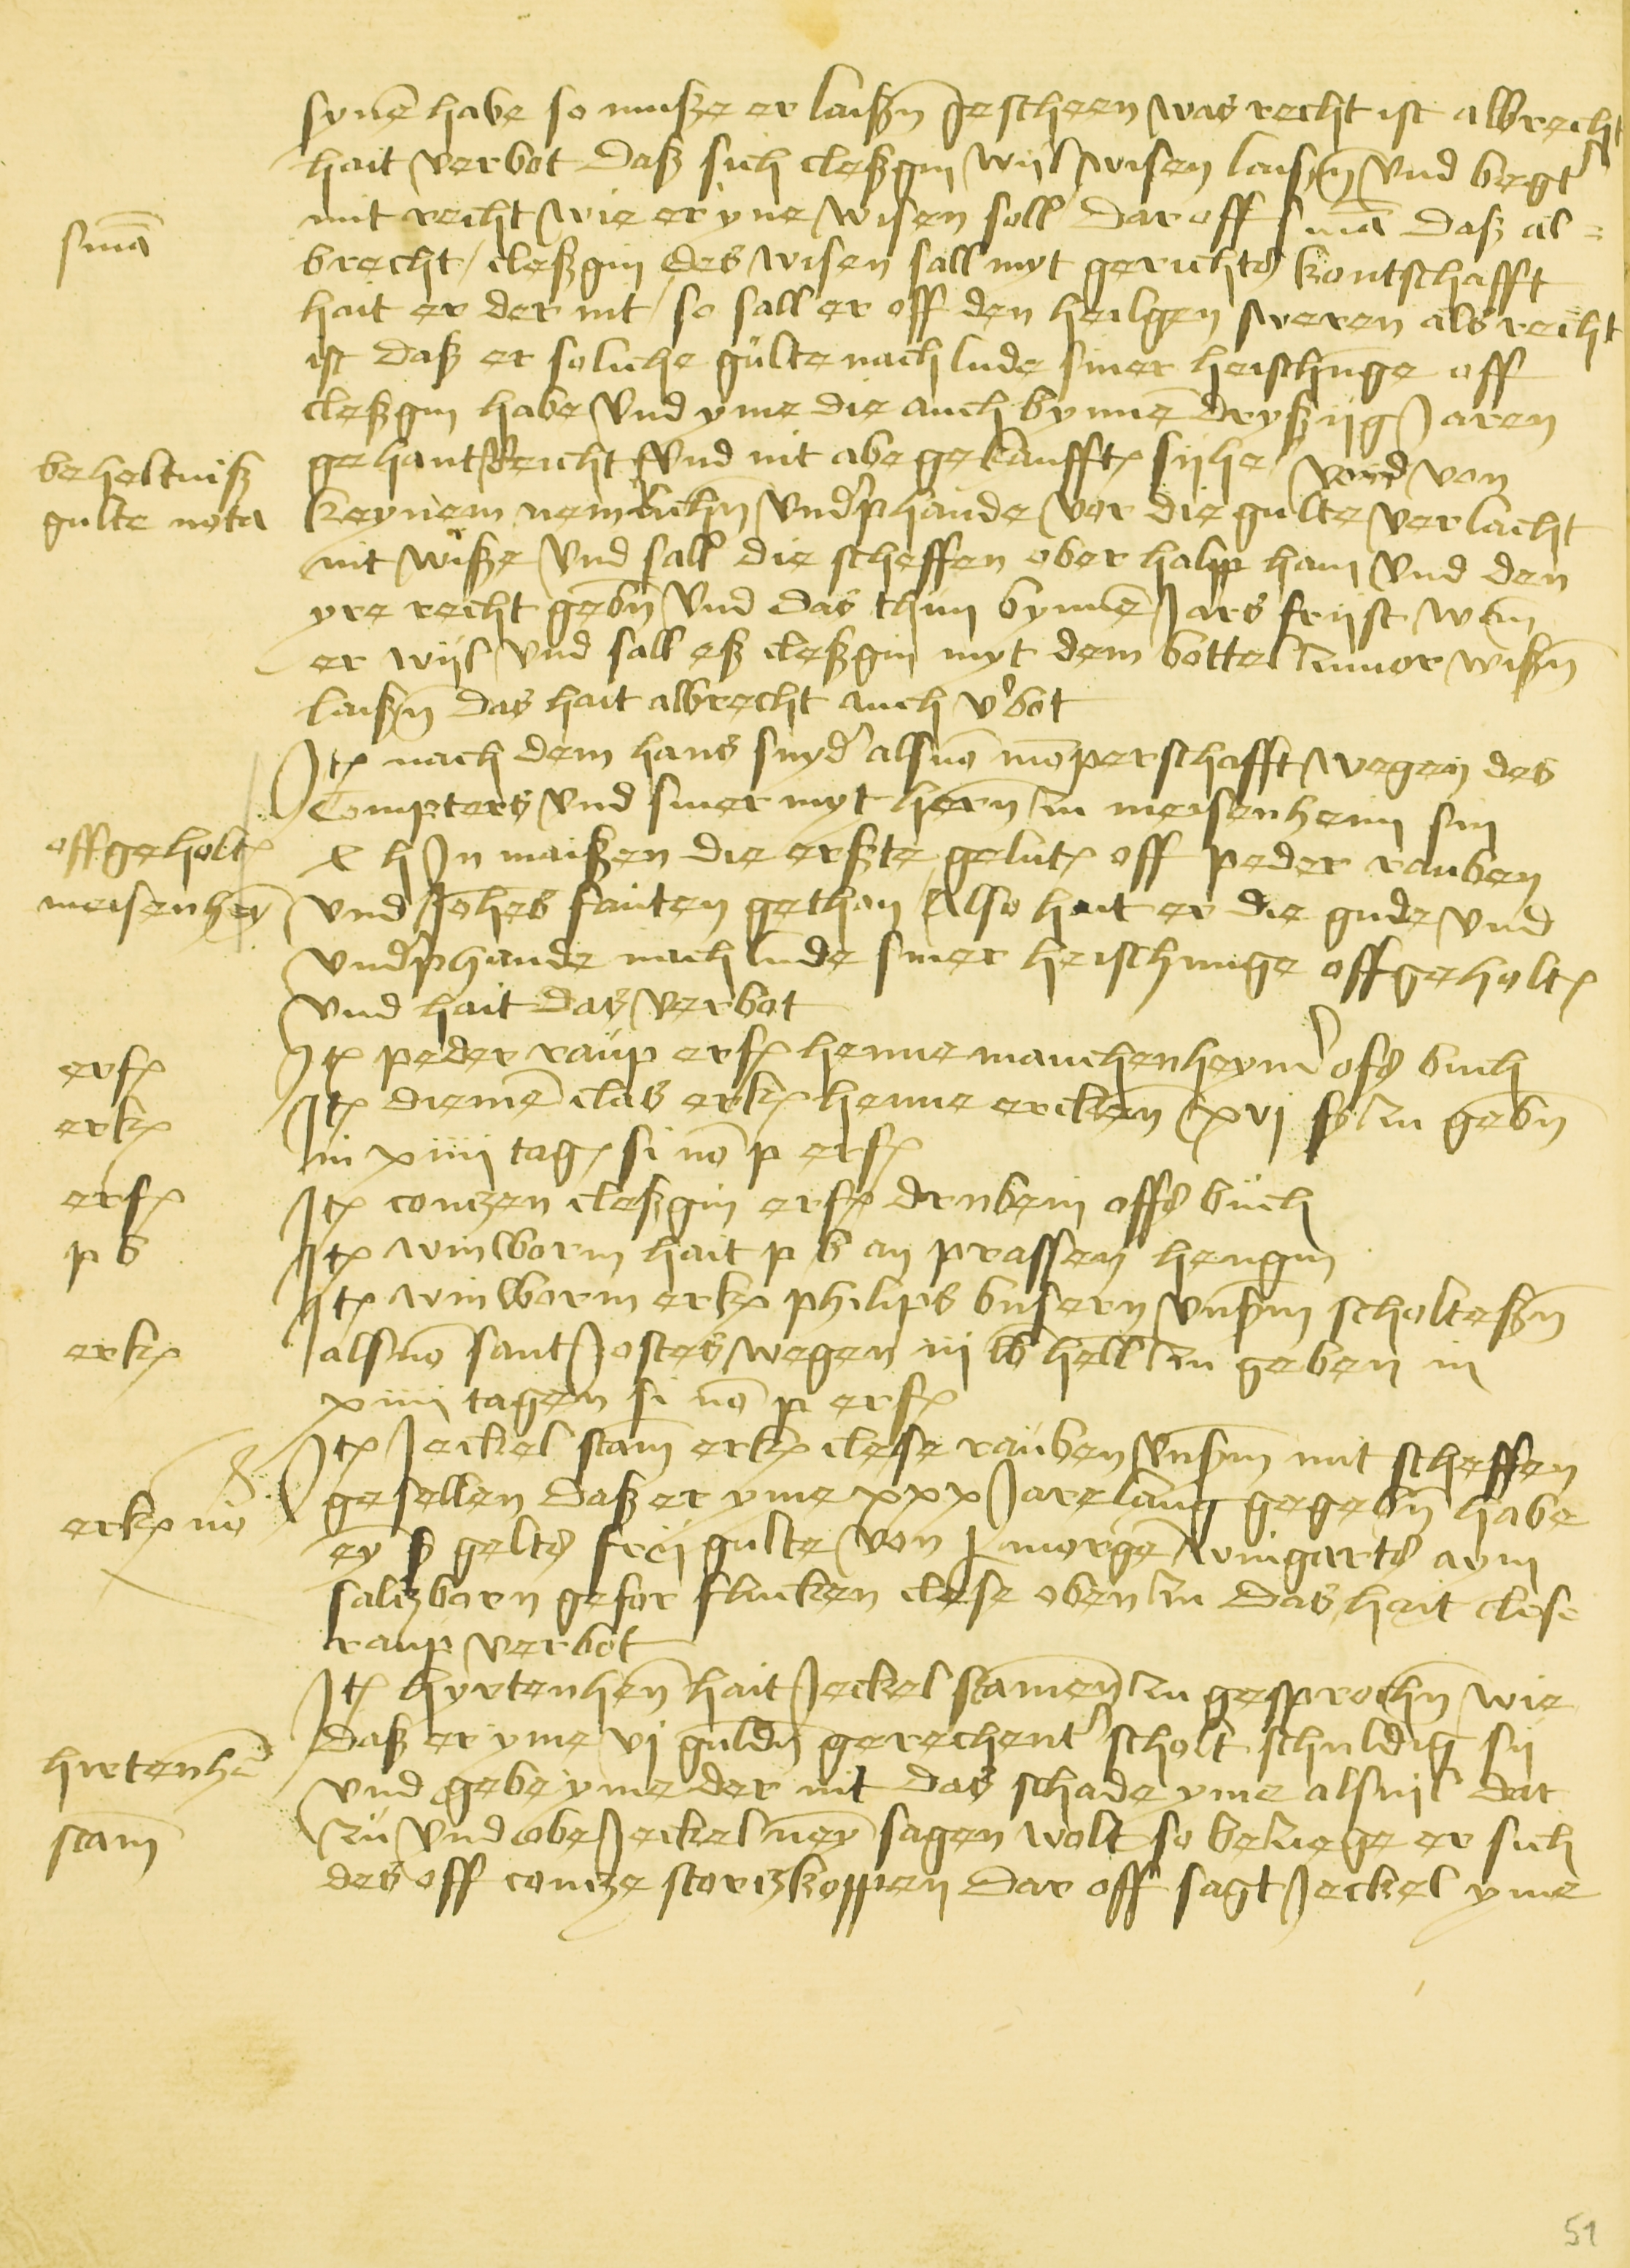 synē habe so muße er laißn̄ gescheen was recht ist albrecht
hait verbot daß sich cleßgin wijl wisen laißn̄ vnd begt'
mit recht wie er yne wisen soll dar off
sniā
sniā daß al=
brecht / cleßgin des wisen sall myt gerichts kontschafft
hait er der nit / so sall er off den heilgen sweren als recht
ist daß er soliche gulte nach lude siner heischunge off
cleßgin habe vnd yme die auch bynnē dryßijg Jaren
beheltniß
gehantreicht vnd nit abe gekaufft sijhe vnd von
gulte nota
keynem nemlichn̄ vnd'phande vor die gulte verlacht
nit wiße vnd sall die scheffen ober halp han vnd den
yre recht gebn̄ vnd das thun bynnē Jars frijst wan̄
er wijl vnd sall eß cleßgin myt dem bottel zuuor wißn̄
laißn̄ das hait albrecht auch v'bot
Jt. nach dem hans snyd' als vō mōperschafft wegen des
Compters vnd siner myt hern̄ zu meisenheim sin
offgeholt.
x h In maißen die erßte gelut. off peder rauben
meisenheȳ
vnd Joh̄es fauten gethan / Also hait er die gude vnd
vnd'phande nach lude siner heischunge offgeholt.
vnd hait das verbot
erf.
Jt. peder raup erf. henne mauchenheym' offs buch
erk.
Jt. diemē clas erk. henne erckeln̄ xvj ß zu gebn̄
in xiiij tag. si nō p erf.
erf.
Jt. contzen cleßgin erf. drubein offs buch
p b
Jt. winworm hait p b an prassen hengin
Jt. winworm erk. philips busern vnßm̄ scholteßn̄
erk.
als vō sant Jostes wegen iij lb hell. zu geben in
xiiij tagen si nō p erf.
Jt. Jeckel stam̄ erk. clese rauben vnßm̄ mit scheffen
gesellen daß er yme xxx Jare lang gegebn̄ habe
erk. nō
eȳ ß gelts frij gulte von j morgē wingarts aym
saltzborn gefor flucken clese oben zu das hait clese
raup verbot
Jt. hyrtenhen̄ hait Jeckel stamen̄ zu gesprochn̄ wie
daß er yme vj guldn̄ gerechent' scholt schuldig sij
hirtenhē
vnd gebe yme der nit das schade yme als vijl dar
stam̄
zu vnd obe Jeckel neȳ sagen wolt so beziege er sich
des off contze stortzkoppen dar off sagt Jeckel yme
51